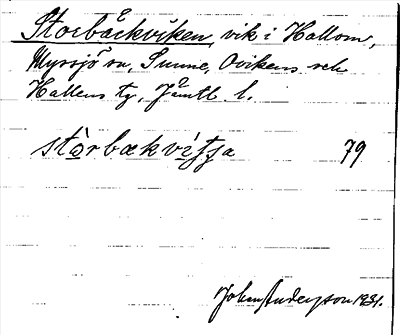 Storbackviken, vik i Hallom,
Myrsjö sn, Sunne, Ovikens och
Hallens tg, Jämtl. l.
stòrbækvìʃʃa 79
John Anderson 1931.